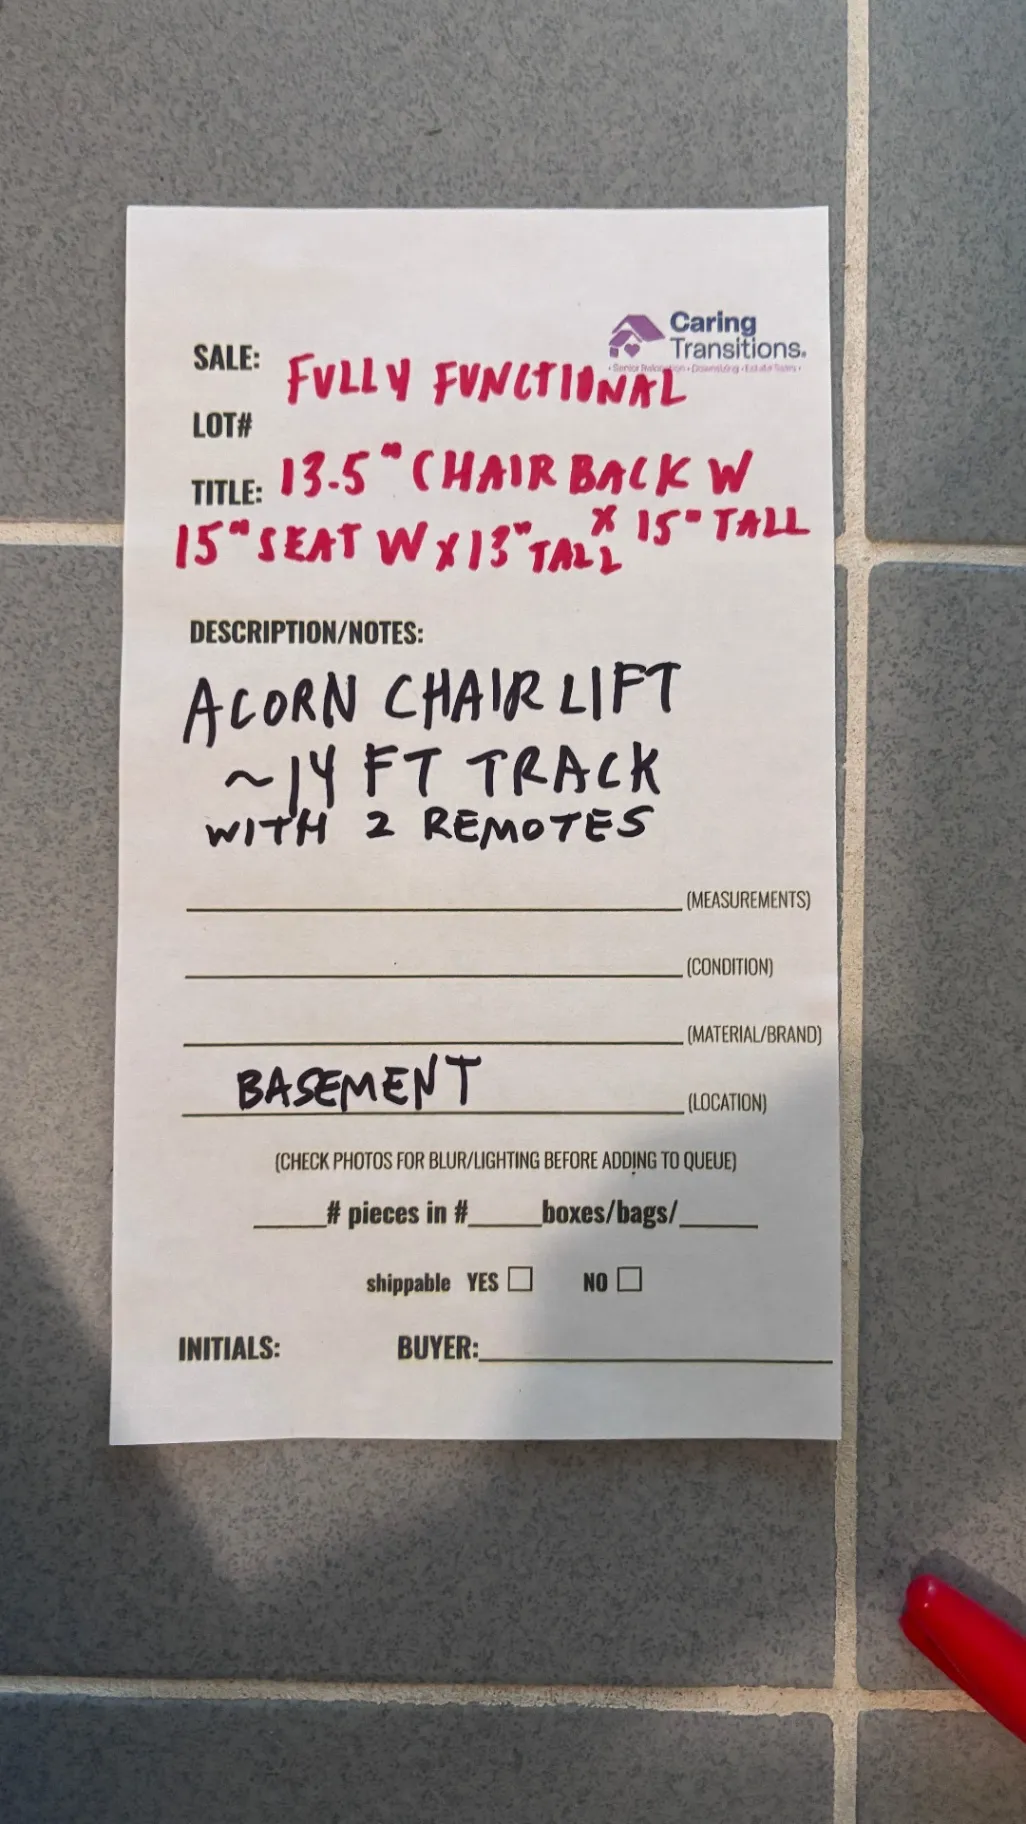 Caring
Transitions.
• Senior Relocation • Downsizing • Estate Sales •
SALE: FULLY FUNCTIONAL
LOT#
TITLE: 13.5" CHAIR BACK W
X 15" TALL
15" SEAT W X 13" TALL
DESCRIPTION/NOTES:
ACORN CHAIR LIFT
~14 FT TRACK
WITH 2 REMOTES
(MEASUREMENTS)
(CONDITION)
(MATERIAL/BRAND)
BASEMENT (LOCATION)
(CHECK PHOTOS FOR BLUR/LIGHTING BEFORE ADDING TO QUEUE)
_____# pieces in #_____boxes/bags/_____
shippable YES ☐ NO ☐
INITIALS: BUYER:__________